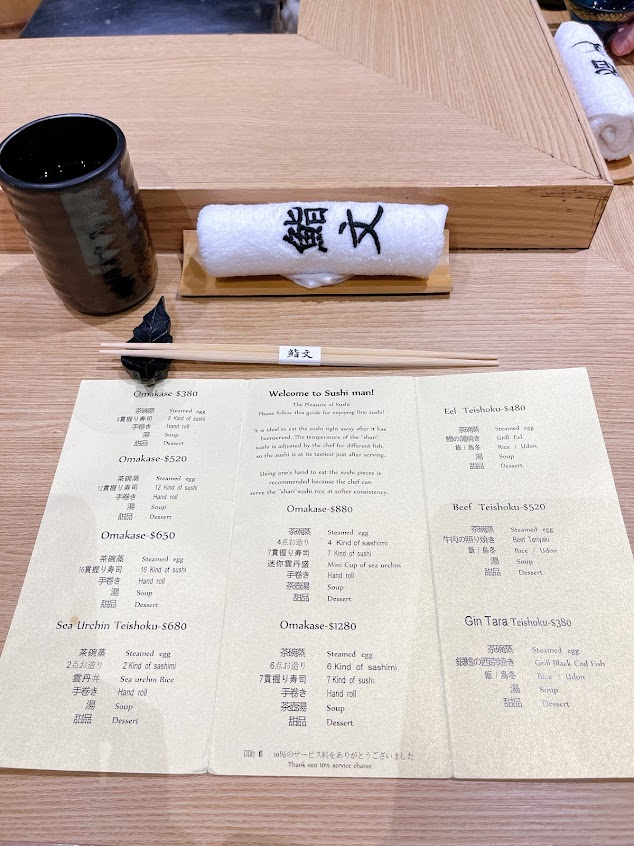 鮨文
鮨文
Omakase-$380
茶碗蒸 Steamed egg
8貫握り寿司 8 Kind of sushi
手巻き Hand roll
湯 Soup
甜品 Dessert
Omakase-$520
茶碗蒸 Steamed egg
12貫握り寿司 12 Kind of sushi
手巻き Hand roll
湯 Soup
甜品 Dessert
Omakase-$650
茶碗蒸 Steamed egg
16貫握り寿司 16 Kind of sushi
手巻き Hand roll
湯 Soup
甜品 Dessert
Sea Urchin Teishoku-$680
茶碗蒸 Steamed egg
2点お造り 2 Kind of sashimi
雲丹丼 Sea urchin Rice
手巻き Hand roll
湯 Soup
甜品 Dessert
Welcome to Sushi man!
The Pleasure of Sushi
Please follow this guide for enjoying fine sushi!
It is ideal to eat the sushi right away after it has
beenserved. The temperature of the "shari"
sushi is adjusted by the chef for different fish,
so the sushi is at its tastiest just after serving.
Using one's hand to eat the sushi pieces is
recommended because the chef can
serve the "shari"sushi rice at softer consistency.
Omakase-$880
茶碗蒸 Steamed egg
4点お造り 4 Kind of sashimi
7貫握り寿司 7 Kind of sushi
迷你雲丹盛 Mini Cup of sea urchin
手巻き Hand roll
茶壺湯 Soup
甜品 Dessert
Omakase-$1280
茶碗蒸 Steamed egg
6点お造り 6 Kind of sashimi
7貫握り寿司 7 Kind of sushi
手巻き Hand roll
茶壺湯 Soup
甜品 Dessert
10%のサービス料をありがとうございました
Thank you 10% service charge
Eel Teishoku-$480
茶碗蒸 Steamed egg
鰻の蒲焼き Grill Eal
飯 / 烏冬 Rice / Udon
湯 Soup
甜品 Dessert
Beef Teishoku-$520
茶碗蒸 Steamed egg
牛肉の照り焼き Beef Teriyaki
飯 / 烏冬 Rice / Udon
湯 Soup
甜品 Dessert
Gin Tara Teishoku-$380
茶碗蒸 Steamed egg
銀鱈の西京焼き Grill Black Cod Fish
飯 / 烏冬 Rice / Udon
湯 Soup
甜品 Dessert